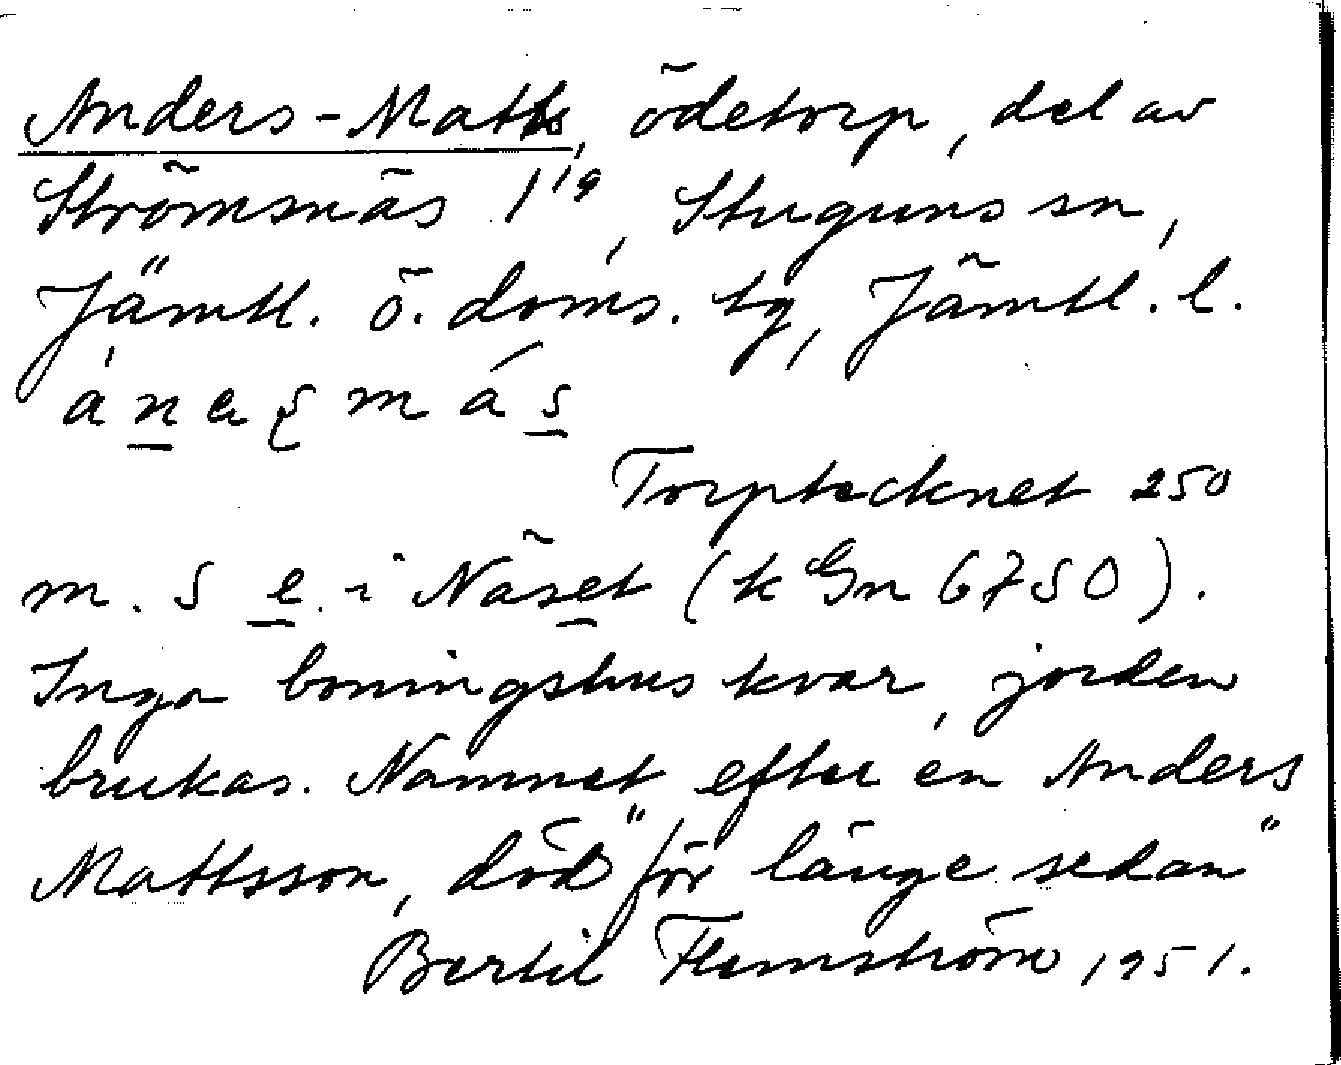 Anders-Matts, ödetorp, del av
Strömsnäs 1¹⁹, Stuguns sn,
Jämtl. ö. doms. tg, Jämtl. l.
Torptecknet 250
m. S e. i Näset (k Gn 6750).
Inga boningshus kvar, jorden
brukas. Namnet efter en Anders
Mattsson, död "för länge sedan"
Bertil Flemström 1951.